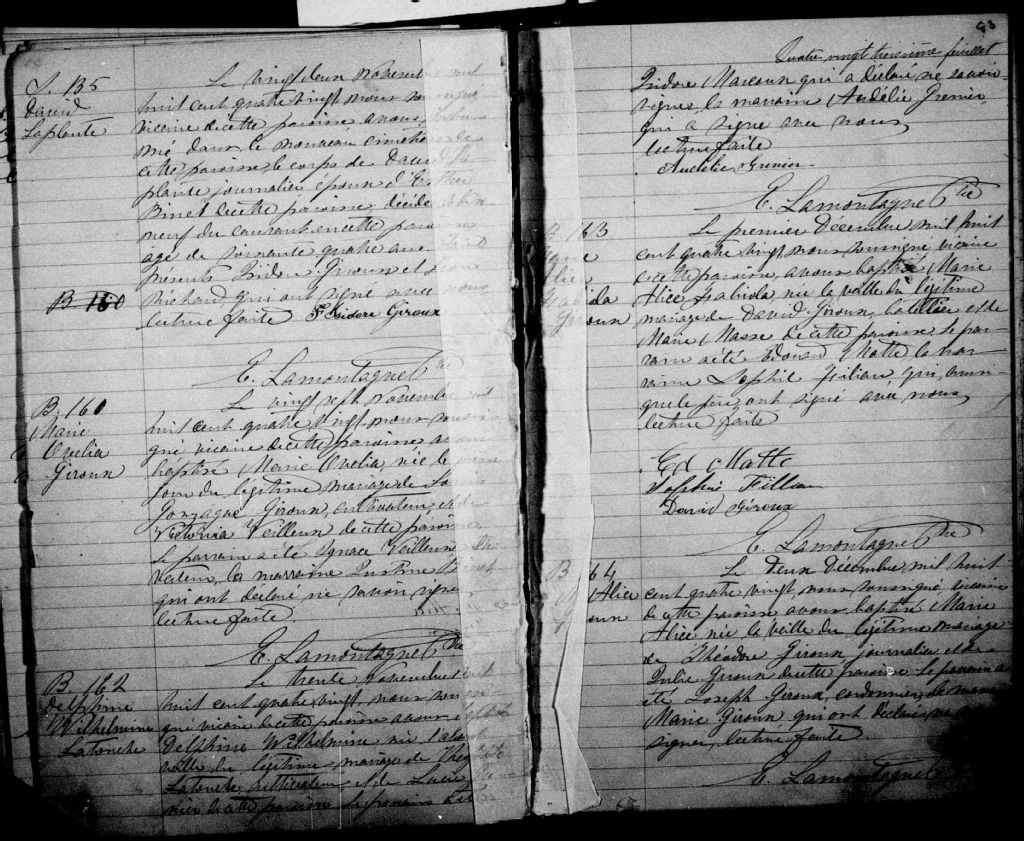 S. 135
David
Laplante
Le vingt deux Novembre mil
huit cent quatre vingt, nous
vicaire de cette paroisse avons
mé dans le nouveau cimetière de
cette paroisse, le corps de David
plante journalier époux d'Esther
Binet de cette paroisse décédé le
neuf du courant en cette paroisse
agé de soixante quatre ans
présents Isidore Giroux et
Richard, qui ont signé avec nous
lecture faite Isidore Giroux
B 160
E. Lamontagne Ptre
B. 160
Marie
Ovelia
Giroux
Le vingt sept Novembre mil
huit cent quatre vingt nous
gné vicaire de cette paroisse avons
baptisé Marie Ovelia, née le
jour du légitime mariage de
Gonzague Giroux, cultivateur, et de
Victoria Veilleux de cette paroisse.
Le parrain a été Ignace Veilleux
vateur, la marraine Justine
qui ont déclaré ne savoir signer
lecture faite.
E. Lamontagne Ptre
B. 162
Delphine
Wilhelmine
Latouche
Le trente Novembre mil
huit cent quatre vingt, nous
gné vicaire de cette paroisse avons
Delphine Wilhelmine née
veille du légitime mariage de
Latouche, cultivateur et de Lucie
de cette paroisse le parrain a été
93
Quatre vingt treizième feuillet
Isidore Marcoux qui a déclaré ne savoir
signer, la marraine Audélie Grenier,
qui a signé avec nous,
lecture faite
Audélie Grenier
E. Lamontagne Ptre
B. 163
Marie
Alice
Fabiola
Giroux
Le premier Décembre mil huit
cent quatre vingt nous soussigné vicaire
de cette paroisse, avons baptisé Marie
Alice Fabiola née la veille du légitime
mariage de David Giroux, batelier et de
Marie Masse de cette paroisse le par-
rain a été Edouard Matte la mar-
raine Sophie Filion, qui,
que le père, ont signé avec nous,
lecture faite
Ed Matte
Sophie Fillion
David Giroux
E. Lamontagne Ptre
B 164
Alice
Giroux
Le deux Décembre, mil huit
cent quatre vingt, nous soussigné, vicaire
de cette paroisse avons baptisé Marie
Alice née la veille du légitime mariage
de Théodore Giroux journalier et de
Julie Giroux de cette paroisse le parrain a
été Joseph Giroux, cordonnier, la
Marie Giroux qui ont déclaré ne
signer, lecture faite.
E. Lamontagne